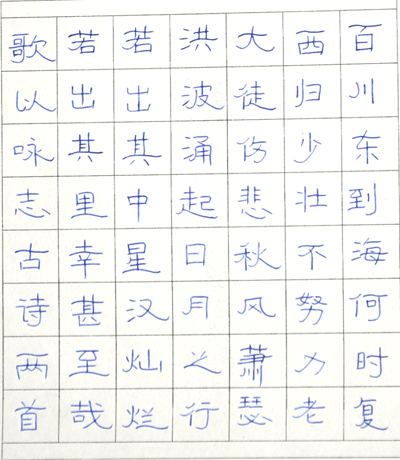 百川东到海何时复
西归少壮不努力老
大徒伤悲秋风萧瑟
洪波涌起日月之行
若出其中星汉灿烂
若出其里幸甚至哉
歌以咏志古诗两首